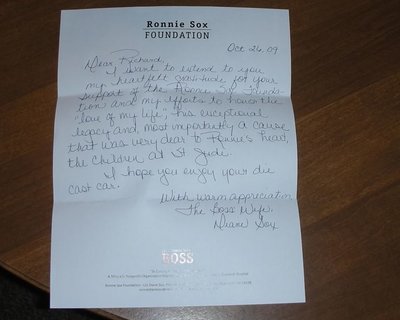 Ronnie Sox
FOUNDATION
Oct 26, 09
Dear Richard,
I want to extend to you
my heartfelt gratitude for your
support of the Ronnie Sox Founda-
tion and my efforts to honor the
"love of my life", his exceptional
legacy and, most importantly a cause
that was very dear to Ronnie's heart,
the children at St Jude.
I hope you enjoy your die
cast car.
With warm appreciation,
The Boss' Wife,
Diane Sox
BOSS